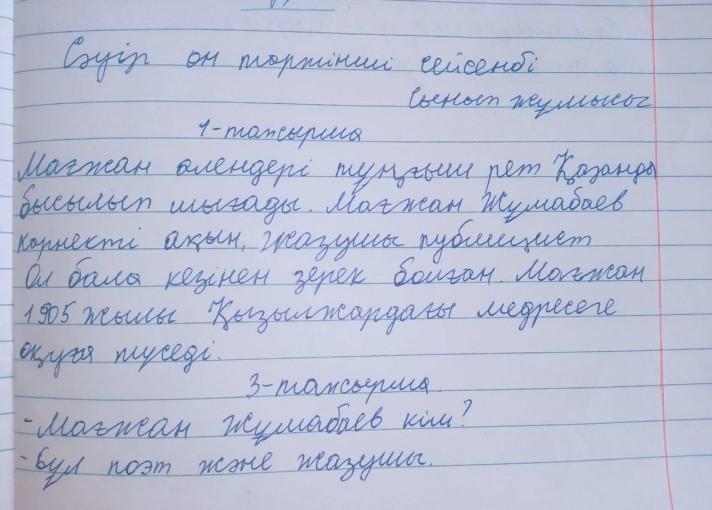 Сәуір он төртінші сейсенбі
Сынып жұмысы
1-тапсырма
Мағжан өлендері тұңғыш рет Қазанда
бысылып шығады. Мағжан Жұмабаев
көрнекті ақын, жазушы публицист
Ол бала кезінен зерек болған. Мағжан
1905 жылы Қызылжардағы медресеге
оқуға түседі.
3-тапсырма
-Мағжан Жұмабаев кім?
-Бұл поэт және жазушы.